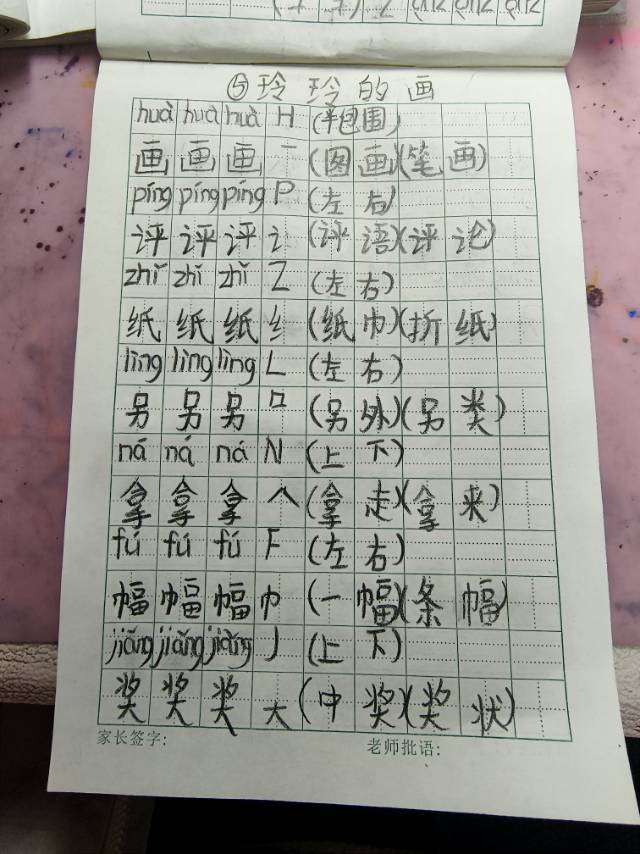 ⑤玲玲的画
huà huà huà H (半包围)
画 画 画 一 (图画)(笔画)
píng píng píng P (左右)
评 评 评 讠 (评语)(评论)
zhǐ zhǐ zhǐ Z (左右)
纸 纸 纸 纟 (纸巾)(折纸)
lìng lìng lìng L (左右)
另 另 另 口 (另外)(另类)
ná ná ná N (上下)
拿 拿 拿 人 (拿走)(拿来)
fú fú fú F (左右)
幅 幅 幅 巾 (一幅)(条幅)
jiǎng jiǎng jiǎng J (上下)
奖 奖 奖 大 (中奖)(奖状)
家长签字: 老师批语: